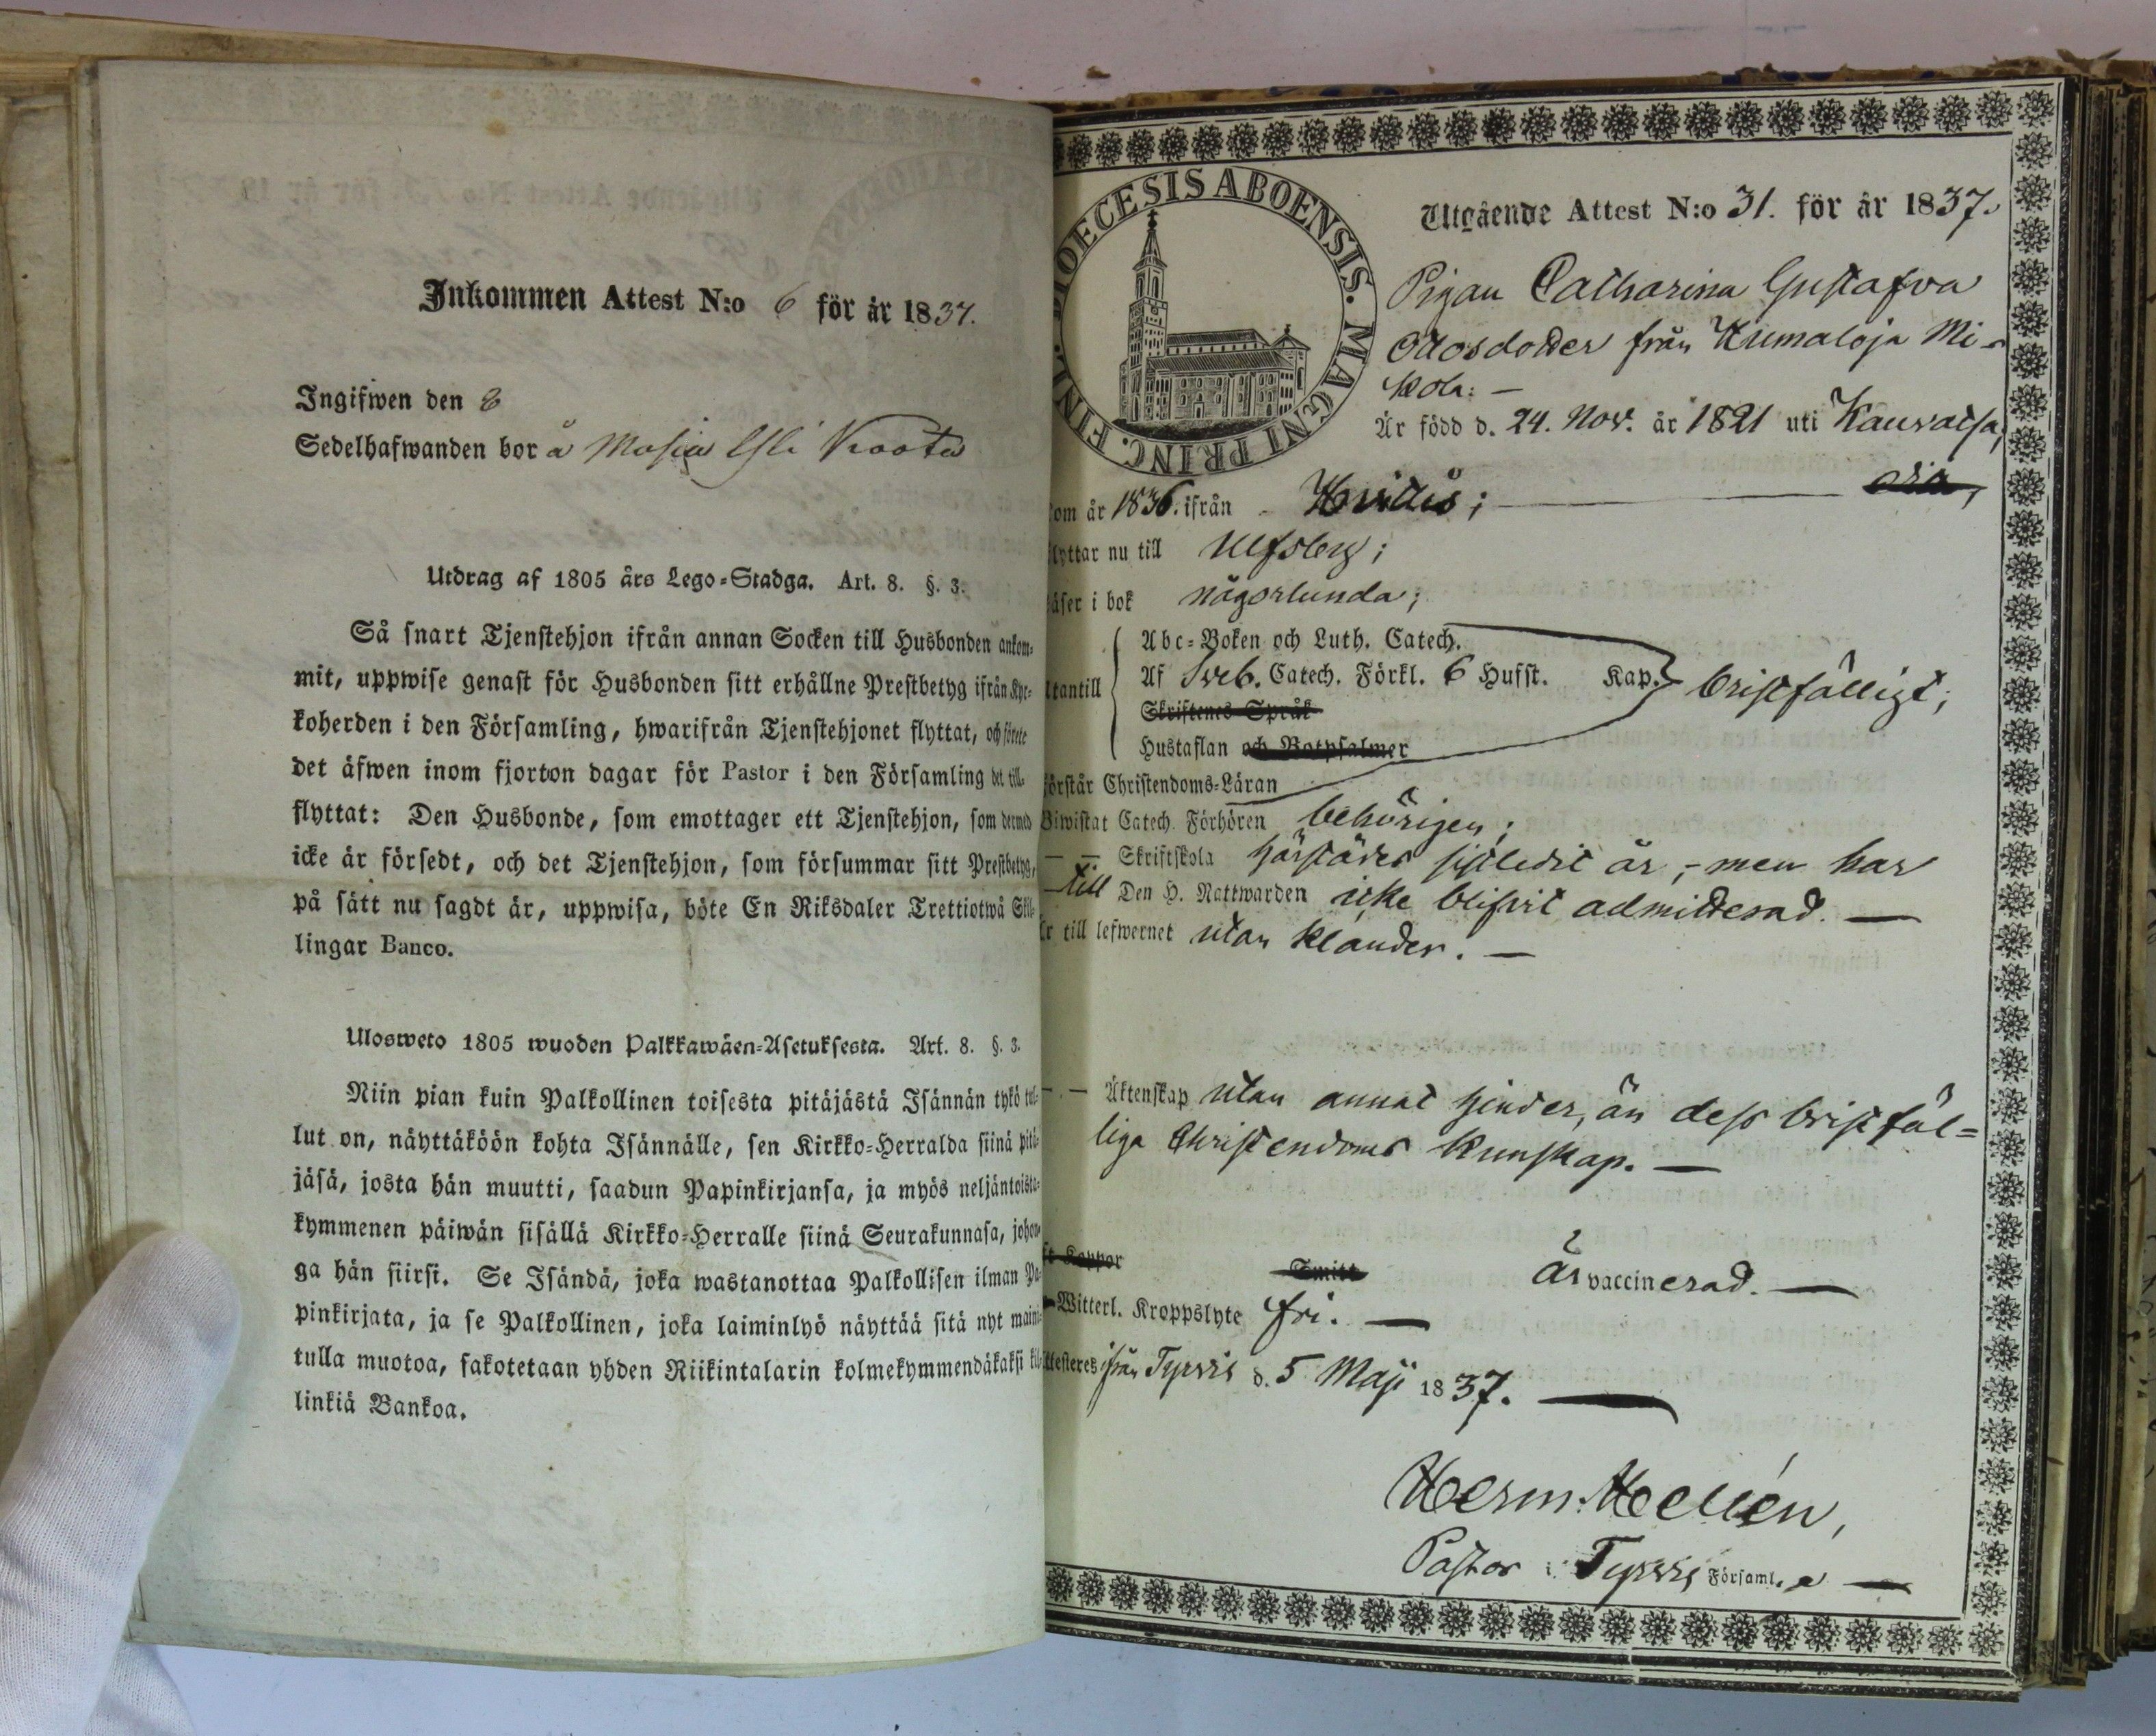 Inkommen Attest N:o 6 för år 1837.
Ingifwen den 8
Sedelhafwanden bor å
Utdrag af 1805 års Lego-Stadga. Art. 8. §. 3.
Så snart Tjenstehjon ifrån annan Socken till Husbonden ankom-
mit, uppwise genast för Husbonden sitt erhållne Prestbetyg ifrån Kyr-
koherden i den Församling, hwarifrån Tjenstehjonet flyttat, och förete
det äfwen inom fjorton dagar för Pastor i den Församling det till-
flyttat: Den Husbonde, som emottager ett Tjenstehjon, som dermed
icke är försedt, och det Tjenstehjon, som försummar sitt Prestbetyg,
på sätt nu sagdt är, uppwisa, böte En Riksdaler Trettiotwå Skil-
lingar Banco.
Ulosweto 1805 wuoden Palkkawäen-Asetuksesta. Art. 8. §. 3.
Niin pian kuin Palkollinen toisesta pitäjästä Isännän tykö tul-
lut on, näyttäköön kohta Isännälle, sen Kirkko-Herralda siinä pitä-
jäsä, josta hän muutti, saadun Papinkirjansa, ja myös neljäntoista-
kymmenen päiwän sisällä Kirkko-Herralle siinä Seurakunnasa, johon-
ga hän siirsi. Se Isändä, joka wastanottaa Palkollisen ilman Pa-
pinkirjata, ja se Palkollinen, joka laiminlyö näyttää sitä nyt maini-
tulla muotoa, sakotetaan yhden Riikintalarin kolmekymmendäkaksi kil-
linkiä Bankoa.
DIOECESIS ABOENSIS. MAGNI PRINC. FINL.
Utgående Attest N:o 31. för år 1837.
Pigan Catharina Gustafva
Ottosdotter från Kiimaloja Mi-
kola: —
Är född d. 24. Nov. år 1821 uti Kauvatsa,
om år 1836. ifrån Hvittis;
lyttar nu till Ulfsby;
äser i bok någorlunda;
Abc-Boken och Luth. Catech.
tantill Af Sveb. Catech. Förkl. 6 Hufst. Kap. bristfälligt;
Skriftenes Språk
Hustaflan och Botpsalmer
örstår Christendoms-Läran
Biwistat Catech. Förhören behörigen;
— — Skriftskola härstädes sistledit år; men har
— till Den H. Nattwarden icke blifvit admitterad. —
r till lefwernet utan klander. —
— — Äktenskap utan annat hinder, än dess bristfäl=
liga Christendoms kunskap. —
Koppor Smitt Är vaccinerad. —
Witterl. Kroppslyte fri. —
ttesteres ifrån Tyrvis d. 5 Maji 1837. —
Herm. Hellén,
Pastor i Tyrvis Församl.